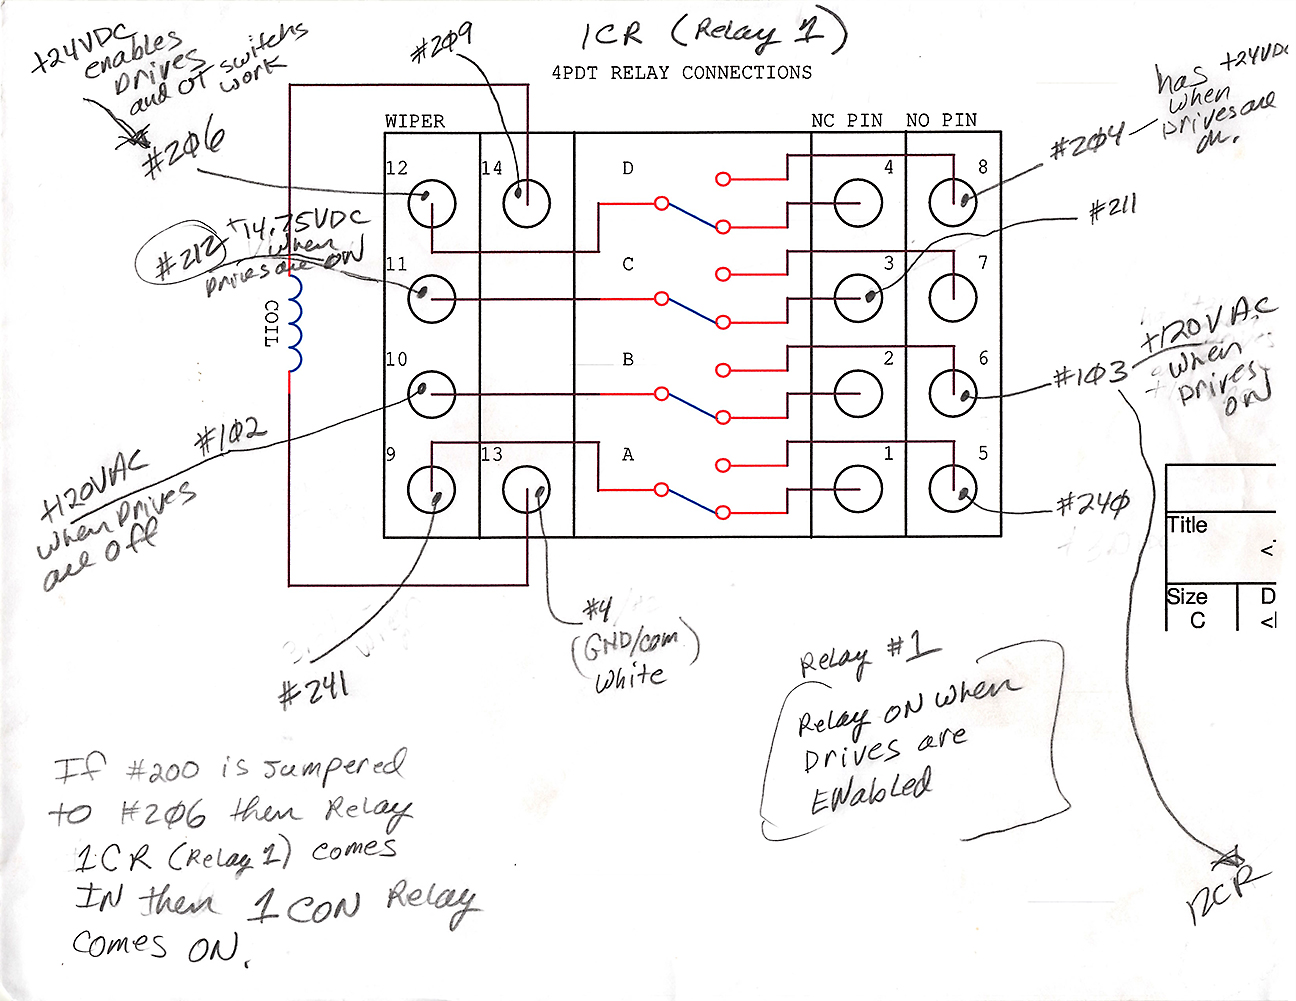 1CR (Relay 1)
4PDT RELAY CONNECTIONS
+24VDC
enables
Drives
and OT switchs
work
#2Ø6
#2Ø9
WIPER
NC PIN
NO PIN
12
14
D
4
8
#2Ø4
has +24VDC
when
Drives are
on.
#211
#212
+14.75VDC
when
Drives are ON
11
C
3
7
COIL
10
B
2
6
#1Ø3
+120VAC
when
Drives
ON
#1Ø2
+120VAC
when Drives
are Off
9
13
A
1
5
#24Ø
#241
#4
(GND/com)
white
Title
<
Size
C
D
<
Relay #1
Relay ON when
Drives are
ENabled
If #200 is Jumpered
to #2Ø6 then Relay
1CR (Relay 1) comes
IN then 1 CON Relay
comes ON.